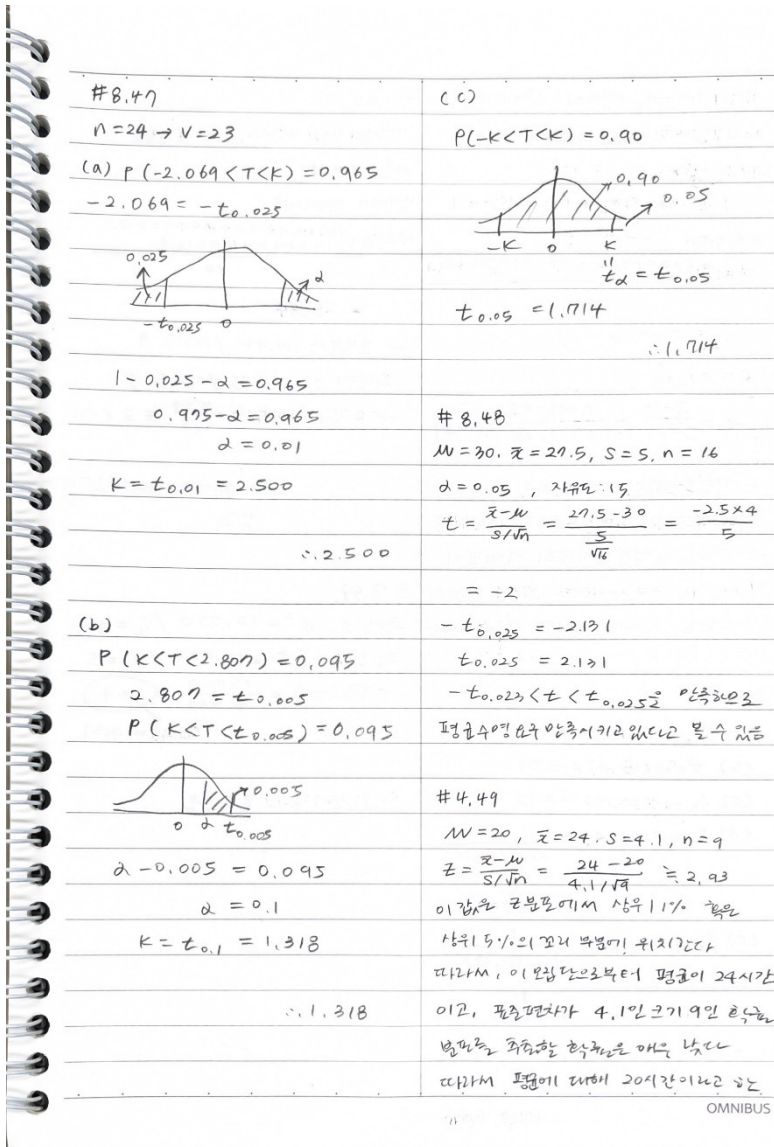 #8.47
n=24 → v=23
(a) P(-2.069<T<K)=0.965
-2.069 = -t0.025
0.025
α
-t0.025 0
1-0.025-α=0.965
0.975-α=0.965
α=0.01
K=t0.01=2.500
∴2.500
(b)
P(K<T<2.807)=0.095
2.807=t0.005
P(K<T<t0.005)=0.095
0.005
0 α t0.005
α-0.005=0.095
α=0.1
K=t0.1=1.318
∴1.318
(c)
P(-K<T<K)=0.90
0.90
0.05
-K 0 K
"
tα=t0.05
t0.05=1.714
∴1.714
#8.48
μ=30. x̄=27.5, S=5, n=16
α=0.05, 자유도:15
t = (x̄-μ)/(S/√n) = (27.5-30)/(5/√16) = (-2.5×4)/5
= -2
-t0.025 = -2.131
t0.025 = 2.131
-t0.023<t<t0.025을 만족하므로
평균수명 요구 만족시키고 있다고 볼 수 있음
#4.49
μ=20, x̄=24. S=4.1, n=9
Z = (x̄-μ)/(S/√n) = (24-20)/(4.1/√9) ≒ 2.93
이 값은 Z분포에서 상위 1% 혹은
상위 5%의 꼬리 부분에 위치한다
따라서, 이 모집단으로부터 평균이 24시간
이고, 표준편차가 4.1인 크기 9인
추출할 확률은 매우 낮다
따라서 평균에 대해 20시간이라고 하는
OMNIBUS